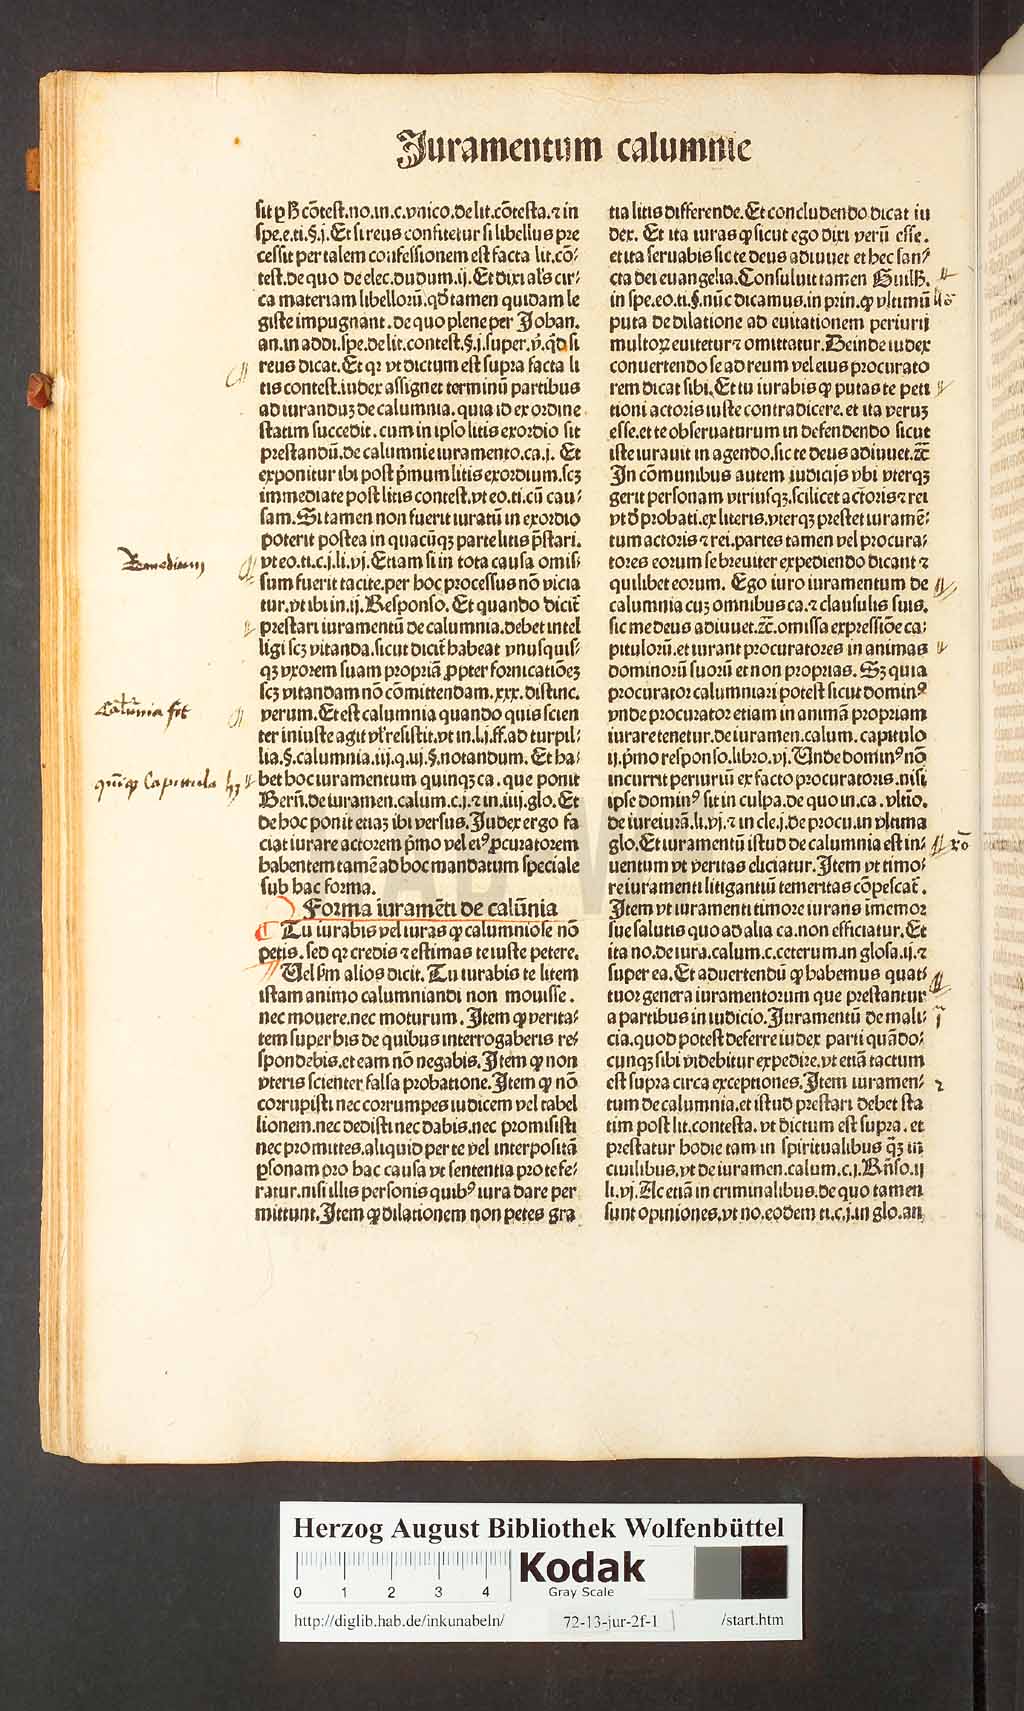 Juramentum calumnie
sit ꝑ hͦ cōtest.no.in.c.vnico.de lit.cōtesta.⁊ in
spe.e.ti.§.j.Et si reus confitetur si libellus pre
cessit per talem confessionem est facta lit.cō-
test.de quo de elec.dudum.ij.Et dixi al's cir-
ca materiam libellorū.qđ tamen quidam le
giste impugnant.de quo plene per Johan.
an.in addi.spe.de lit.contest.§.j.super.ꝟ.qđ si
reus dicat.Et qꝛ vt dictum est supra facta li
tis contest.iudex assignet terminū partibus
ad iuranduꝫ de calumnia.quia id ex ordine
statim succedit.cum in ipso litis exordio sit
prestandū.de calumnie iuramento.ca.j. Et
exponitur ibi post p̄mum litis exordium.scꝫ
immediate post litis contest.vt eo.ti.cū cau-
sam.Si tamen non fuerit iuratū in exordio
poterit postea in quacūqꝫ parte litis p̄stari.
vt eo.ti.c.j.li.vj.Etiam si in tota causa omis-
sum fuerit tacite.per hoc processus nō vicia
tur.vt ibi in.ij.Responso. Et quando dicit̄
prestari iuramentū de calumnia.debet intel
ligi scꝫ vitanda.sicut dicit̄ habeat vnusquis-
qꝫ vxorem suam propriā ꝓpter fornicatiōeꝫ
scꝫ vitandam nō cōmittendam.xxx.distinc.
verum.Et est calumnia quando quis scien
ter iniuste agit vl' resistit.vt in.l.j.ff.ad turpil-
lia.§.calumnia.iij.q.uj.§.notandum. Et ha-
bet hoc iuramentum quinqꝫ ca. que ponit
Bern̄.de iuramen.calum.c.j.⁊ in.iiij.glo. Et
de hoc ponit etiaꝫ ibi versus.Judex ergo fa
ciat iurare actorem p̄mo vel eiꝰ ꝓcuratorem
habentem tamē ad hoc mandatum speciale
sub hac forma.
Forma iuramēti de calūnia
Tu iurabis vel iuras ꝙ calumniose nō
petis.sed qꝛ credis ⁊ estimas te iuste petere.
Vel sm̄ alios dicit. Tu iurabis te litem
istam animo calumniandi non mouisse.
nec mouere.nec moturum. Item ꝙ verita-
tem super his de quibus interrogaberis re-
spondebis.et eam nō negabis.Item ꝙ non
vteris scienter falsa probatione.Item ꝙ nō
corrupisti nec corrumpes iudicem vel tabel
lionem.nec dedisti nec dabis.nec promisisti
nec promittes.aliquid per te vel interpositā
ꝑsonam pro hac causa vt sententia pro te fe-
ratur.nisi illis personis quibꝰ iura dare per
mittunt.Item ꝙ dilationem non petes gra
tia litis differende. Et concludendo dicat iu
dex. Et ita iuras ꝙ sicut ego dixi verū esse.
et ita seruabis sic te deus adiuuet et hec san-
cta dei euangelia.Consuluit tamen Guilh̄.
in spe.eo.ti.§.nūc dicamus.in prin.ꝙ vltimū
puta de dilatione ad euitationem periurii
multoꝝ euitetur ⁊ omittatur.Deinde iudex
conuertendo se ad reum vel eius procurato
rem dicat sibi.Et tu iurabis ꝙ putas te peti
tioni actoris iuste contradicere.et ita veruꝫ
esse.et te obseruaturum in defendendo sicut
iste iurauit in agendo.sic te deus adiuuet.⁊c̄
In cōmunibus autem iudicijs vbi vterqꝫ
gerit personam vtriusqꝫ.scilicet actoris ⁊ rei
vt đ probati.ex literis.vterqꝫ prestet iuramē-
tum actoris ⁊ rei.partes tamen vel procura-
tores eorum se breuiter expediendo dicant ⁊
quilibet eorum. Ego iuro iuramentum de
calumnia cuꝫ omnibus ca.⁊ clausulis suis.
sic me deus adiuuet.⁊c̄.omissa expressiōe ca-
pitulorū.et iurant procuratores in animas
dominorū suorū et non proprias. Sꝫ quia
procurator calumniari potest sicut dominꝰ
vnde procurator etiam in animā propriam
iurare tenetur.de iuramen.calum. capitulo
ij.p̄mo responso.libro.vj.Unde dominꝰ nō
incurrit periuriū ex facto procuratoris.nisi
ipse dominꝰ sit in culpa.de quo in.ca.vltīo.
de iureiurā.li.vj.⁊ in cle.j.de procu.in vltima
glo.Et iuramentū istud de calumnia est in-
uentum vt veritas eliciatur.Item vt timo-
re iuramenti litigantiū temeritas cōpescat̄.
Item vt iuramenti timore iurans īmemor
sue salutis quo ad alia ca.non efficiatur. Et
ita no.de iura.calum.c.ceterum.in glosa.ij.⁊
super ea. Et aduertendū ꝙ habemus quat-
tuor genera iuramentorum que prestantur
a partibus in iudicio.Juramentū de mali-
cia.quod potest deferre iudex parti quādo-
cunqꝫ sibi videbitur expedire.vt etiā tactum
est supra circa exceptiones.Item iuramen-
tum de calumnia.et istud prestari debet sta
tim post lit.contesta.vt dictum est supra.et
prestatur hodie tam in spiritualibus q̄ꝫ in
ciuilibus.vt de iuramen.calum.c.j.Rn̄so.ij
li.vj.Ac etiā in criminalibus.de quo tamen
sunt opiniones.vt no.eodem ti.c.j.in glo.an
Calūnia
Capittula
Herzog August Bibliothek Wolfenbüttel
0 1 2 3 4
Kodak
Gray Scale
http://diglib.hab.de/inkunabeln/ 72-13-jur-2f-1 /start.htm